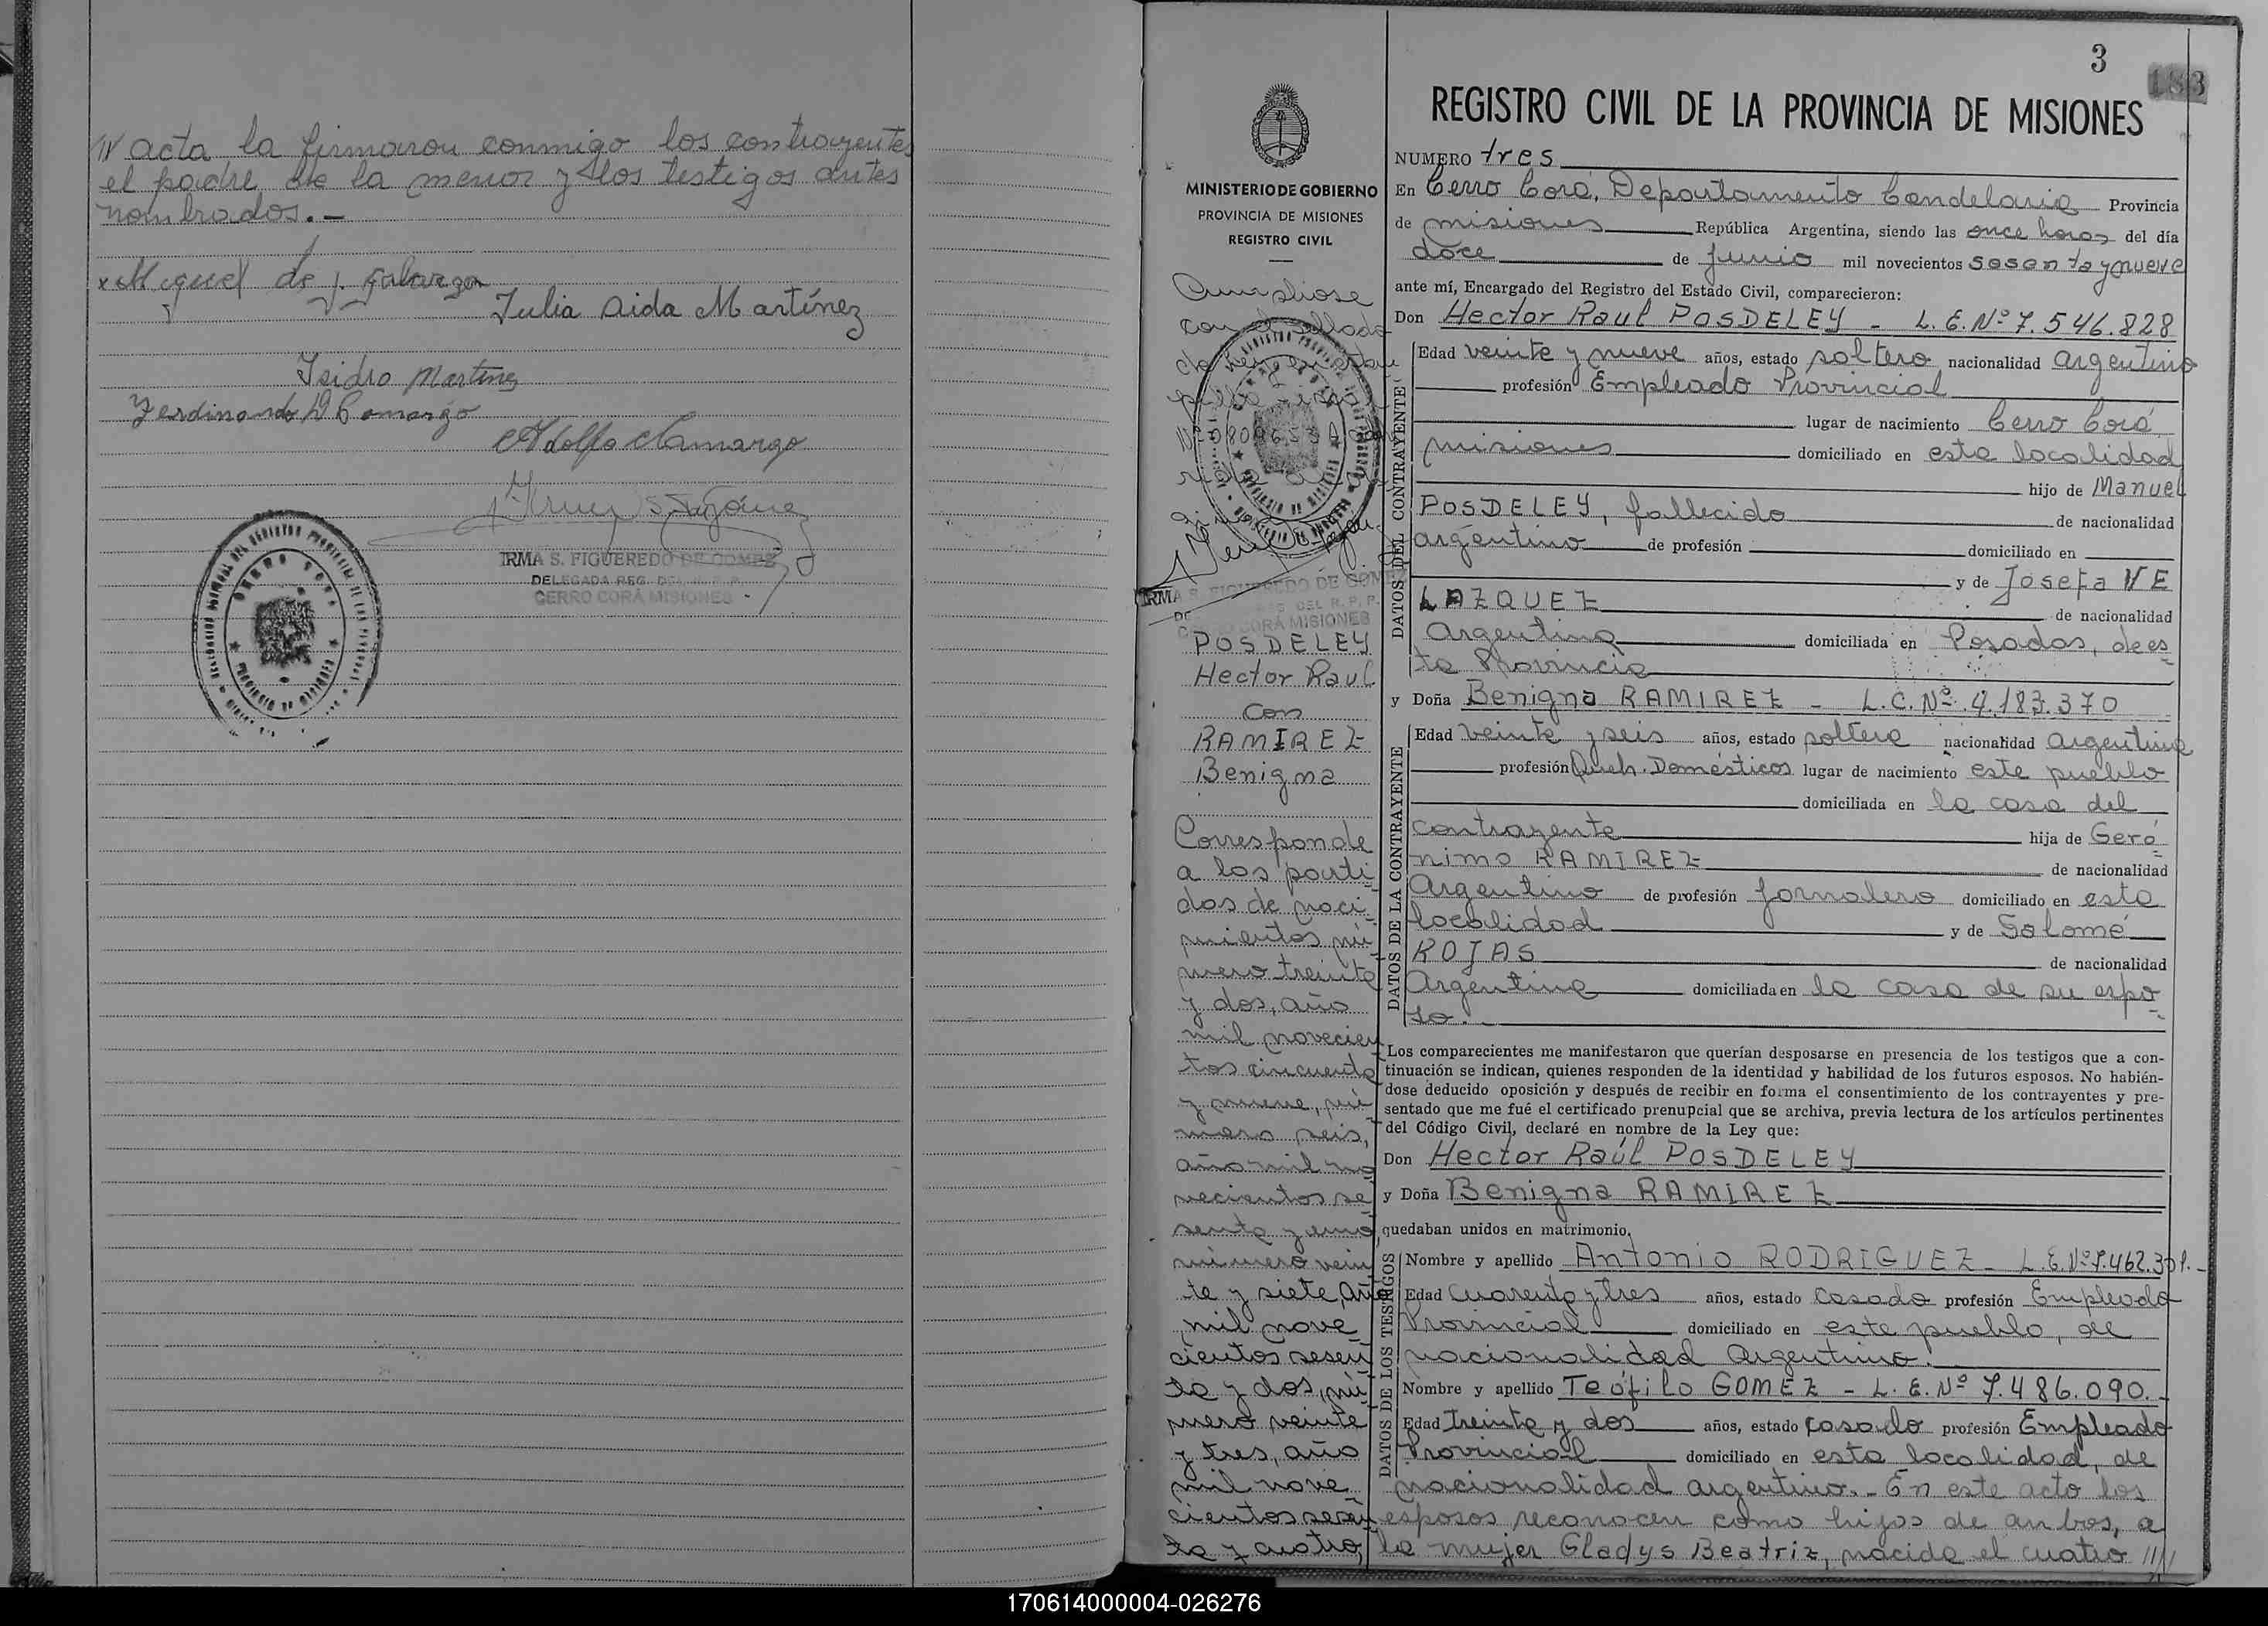 acta la firmaron conmigo los contrayentes
el padre de la menor y los testigos antes
nombrados.-
Miguel de J. Galarza
Julia Aida Martínez
Isidro Martinez
Ferdinando D Camargo
Adolfo Camargo
IRMA S. FIGUEREDO DE GOMEZ
DELEGADA REG. DEL R. P. P.
CERRO CORÁ MISIONES
3
183
REGISTRO CIVIL DE LA PROVINCIA DE MISIONES
MINISTERIO DE GOBIERNO
PROVINCIA DE MISIONES
REGISTRO CIVIL
Cumpliose
con el sellado
IRMA S. FIGUEREDO DE GOMEZ
DEL R. P. P.
CERRO CORÁ MISIONES
POSDELEY
Hector Raul
con
RAMIREZ
Benigna
Corresponde
a las parti
das de naci
mientos nú
mero treinta
y dos, año
mil novecien
tos cincuenta
y nueve, nú
mero seis,
año mil no
vecientos se
senta y uno
número vein
te y siete, año
mil nove
cientos sesen
ta y dos, nú
mero veinte
y tres, año
mil nove
cientos sesen
ta y cuatro,
NUMERO tres
En Cerro Corá, Departamento Candelaria Provincia
de misiones República Argentina, siendo las once horas del día
doce de Junio mil novecientos sesenta y nueve
ante mí, Encargado del Registro del Estado Civil, comparecieron:
Don Hector Raul POSDELEY - L. E. Nº 7.546.828
DATOS DEL CONTRAYENTE
Edad veinte y nueve años, estado soltero nacionalidad argentino
profesión Empleado Provincial
lugar de nacimiento Cerro Corá
misiones domiciliado en esta localidad
hijo de Manuel
POSDELEY, fallecido de nacionalidad
argentino de profesión domiciliado en
y de Josefa VE
LAZQUEZ de nacionalidad
Argentina domiciliada en Posadas, de es
ta Provincia
y Doña Benigna RAMIREZ - L. C. Nº 4.183.370
DATOS DE LA CONTRAYENTE
Edad veinte y seis años, estado soltera nacionalidad argentina
profesión Queh. Domésticos lugar de nacimiento este pueblo
domiciliada en la casa del
contrayente hija de Geró
nimo RAMIREZ de nacionalidad
Argentino de profesión Jornalero domiciliado en esta
localidad y de Salomé
ROJAS de nacionalidad
Argentina domiciliada en la casa de su espo
so.-
Los comparecientes me manifestaron que querían desposarse en presencia de los testigos que a con-
tinuación se indican, quienes responden de la identidad y habilidad de los futuros esposos. No habién-
dose deducido oposición y después de recibir en forma el consentimiento de los contrayentes y pre-
sentado que me fué el certificado prenupcial que se archiva, previa lectura de los artículos pertinentes
del Código Civil, declaré en nombre de la Ley que:
Don Hector Raúl POSDELEY
y Doña Benigna RAMIREZ
quedaban unidos en matrimonio.
DATOS DE LOS TESTIGOS
Nombre y apellido Antonio RODRIGUEZ - L. E. Nº 7.462.301.-
Edad Cuarenta y tres años, estado casado profesión Empleado
Provincial domiciliado en este pueblo, de
nacionalidad Argentino.
Nombre y apellido Teófilo GOMEZ - L. E. Nº 7.486.090.-
Edad Treinta y dos años, estado casado profesión Empleado
Provincial domiciliado en esta localidad, de
nacionalidad argentino.- En este acto los
esposos reconocen como hijos de ambos, a
la mujer Gladys Beatriz, nacida el cuatro ////
170614000004-026276